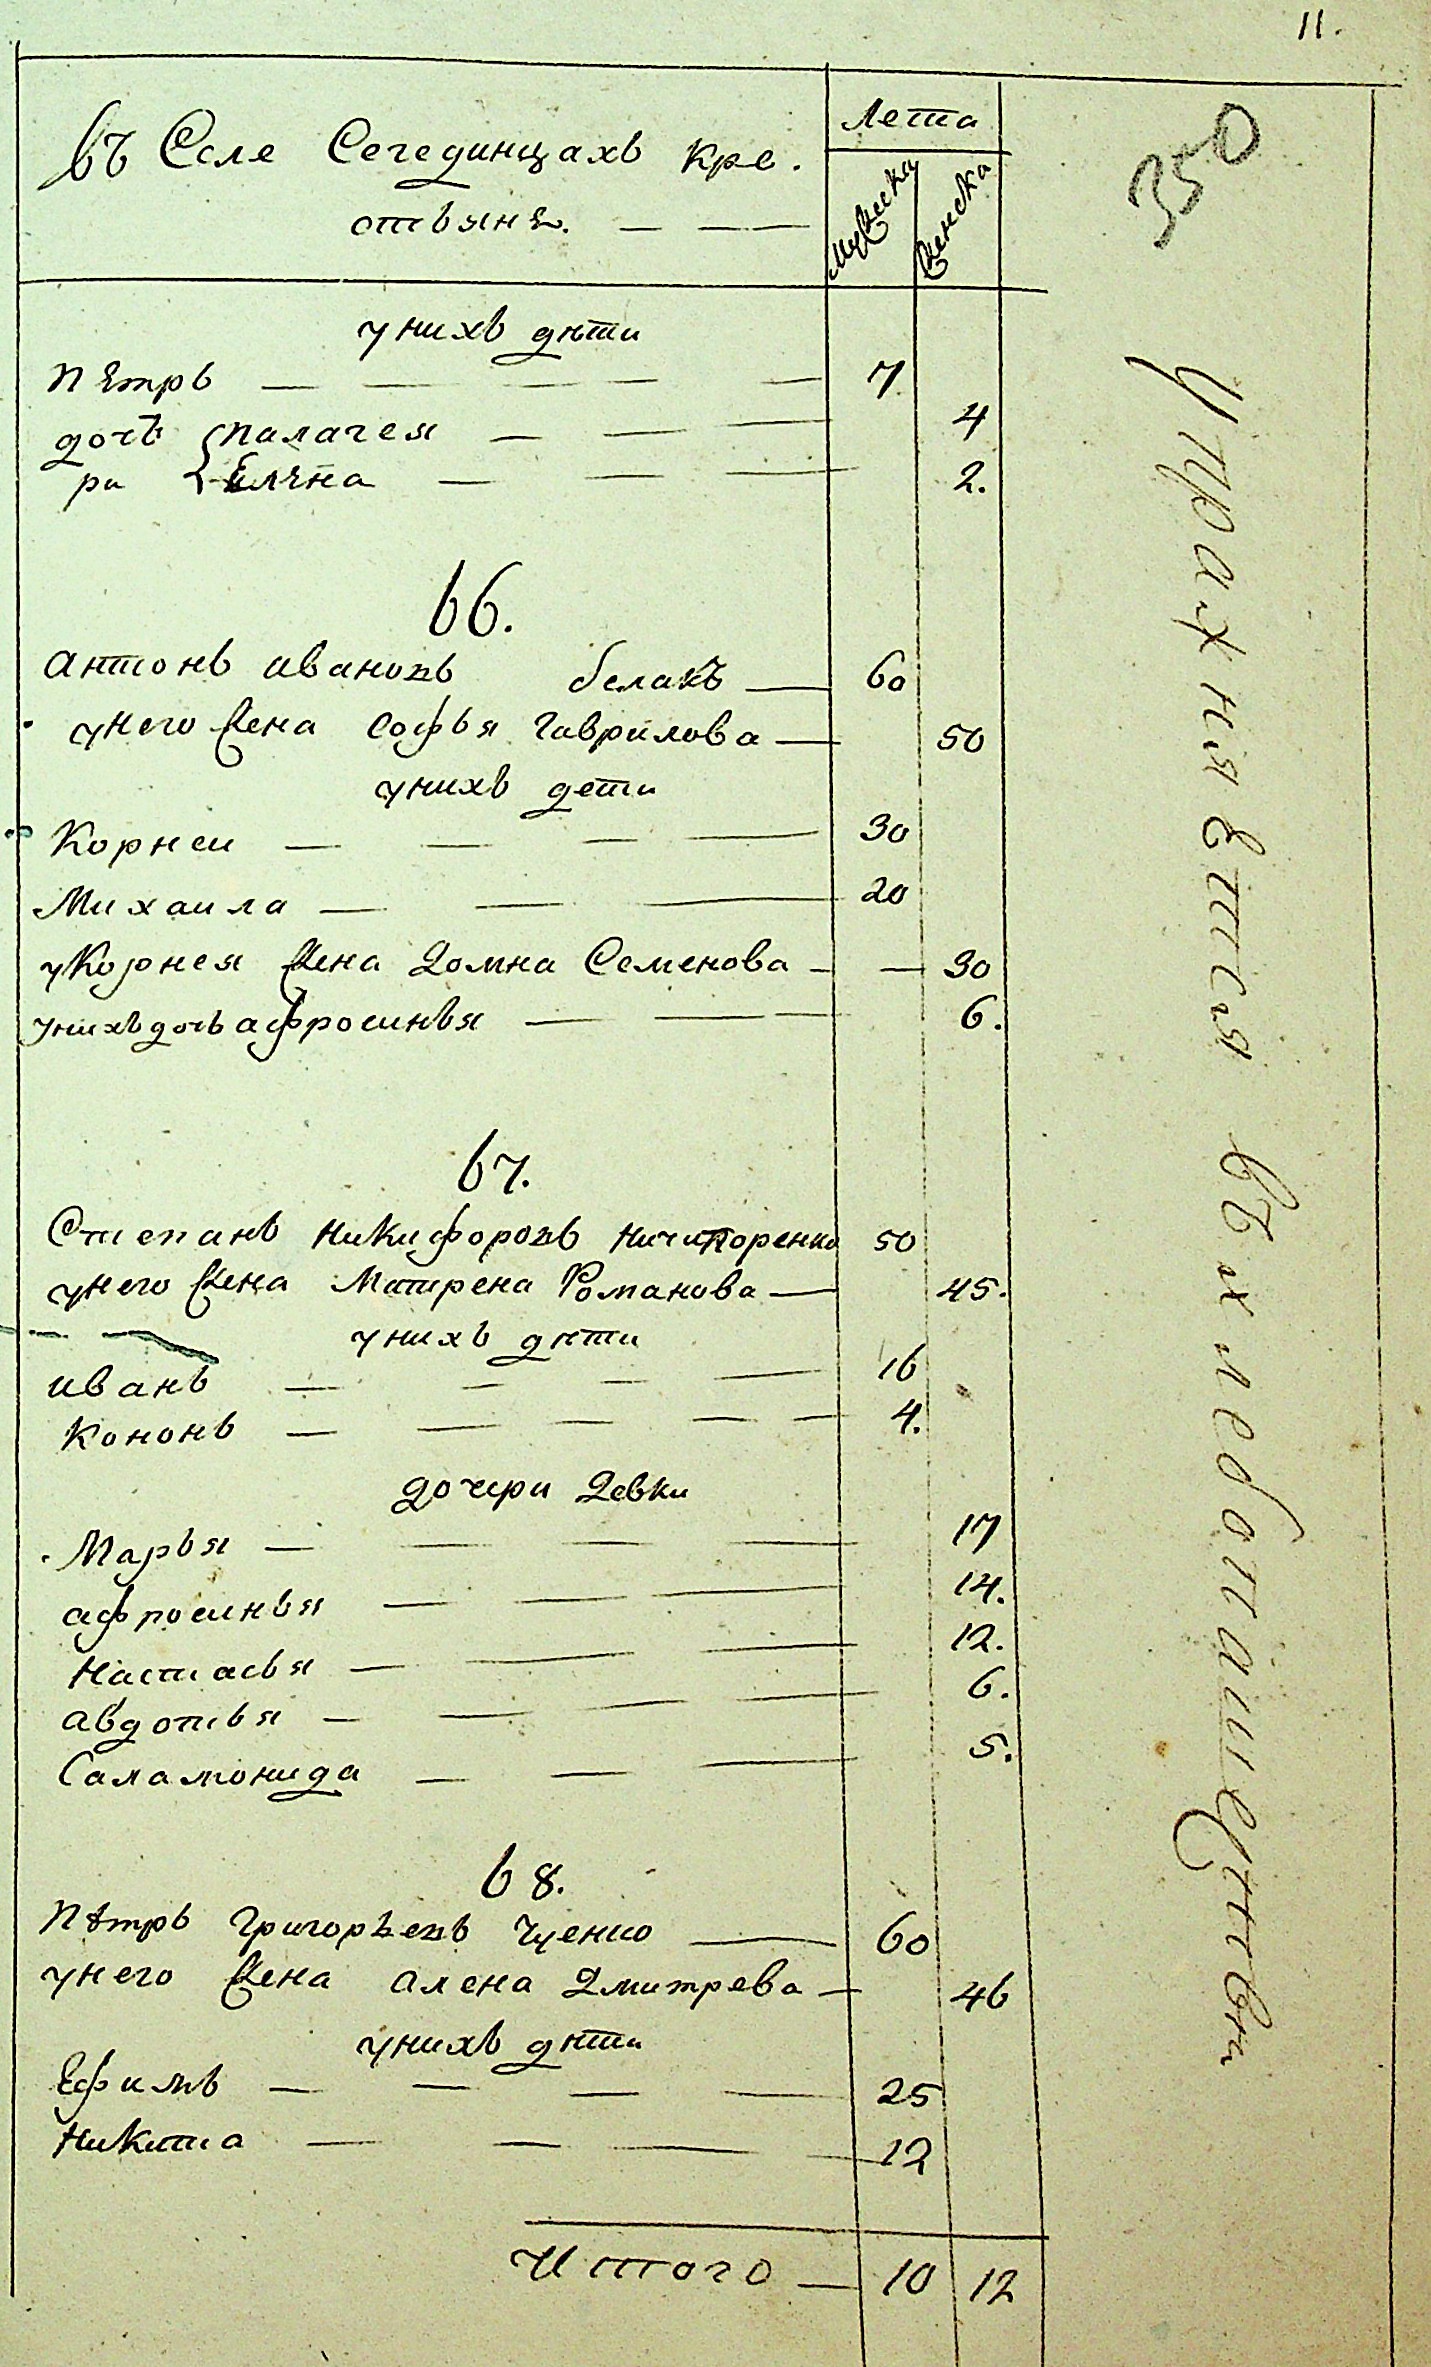 11.
въ Селе Сегединцахъ кре.
стьянѣ.
Лета
Мужска
Женска
350
у нихъ дѣти
пѣтръ 7
дочѣ палагея 4
ри Елѣна 2.
66.
антонъ ивановъ белакъ 60
унего жена софья гаврилова 50
унихъ дети
Корнеи 30
Михаила 20
уКорнея жена домна Семенова 30
унихъ дочь афросинья 6.
67.
Степанъ никифоровъ ничипоренко 50
унего жена Матрена Романова 45.
унихъ дѣти
иванъ 16
кононъ 4.
дочери девки
Марья 17
афросинья 14.
настасья 12.
авдотья 6.
Саламонида 5.
68.
пѣтръ григорьевъ 60
унего жена алена дмитрева 46
унихъ дѣти
Ефимъ 25
Никита 12
Итого 10 12
Упражняется въ хлебопашествѣ